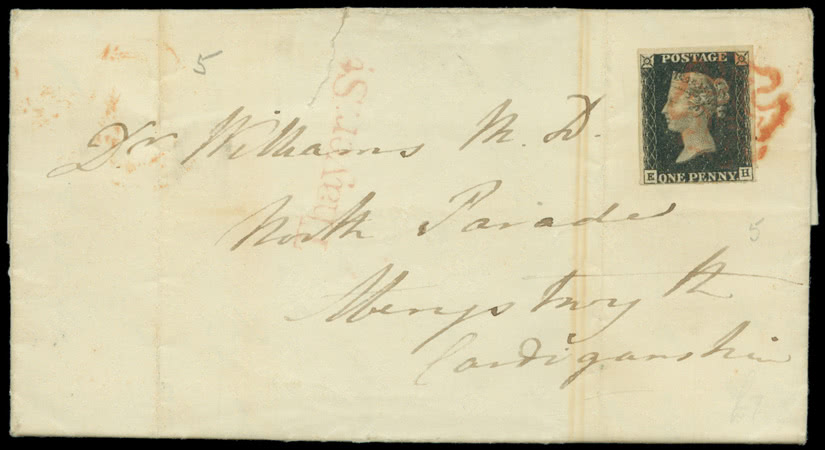 5
POSTAGE
ONE PENNY
E H
Thayer St
Dr Williams M. D.
North Parade
Aberystwyth
Cardiganshire
5